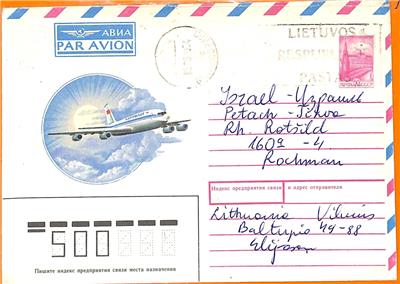 АВИА
PAR AVION
LIETUVOS
RESPUBLI
PAŠTAS
Israel - Израиль
Petach-Tikva
Rh. Rotšild
160a - 4
Rochman
Индекс предприятия связи и адрес отправителя
Lithuania Vilnius
Baltupio 49-88
500
Пишите индекс предприятия связи места назначения